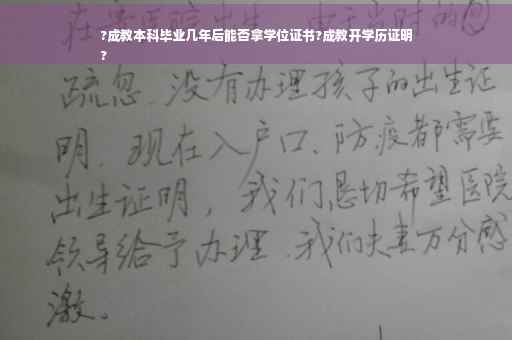 ?成教本科毕业几年后能否拿学位证书?成教开学历证明
?
疏忽.没有办理孩子的出生证
明.现在入户口、防疫都需要
出生证明，我们恳切希望医院
领导给予办理.我们夫妻万分感
激。